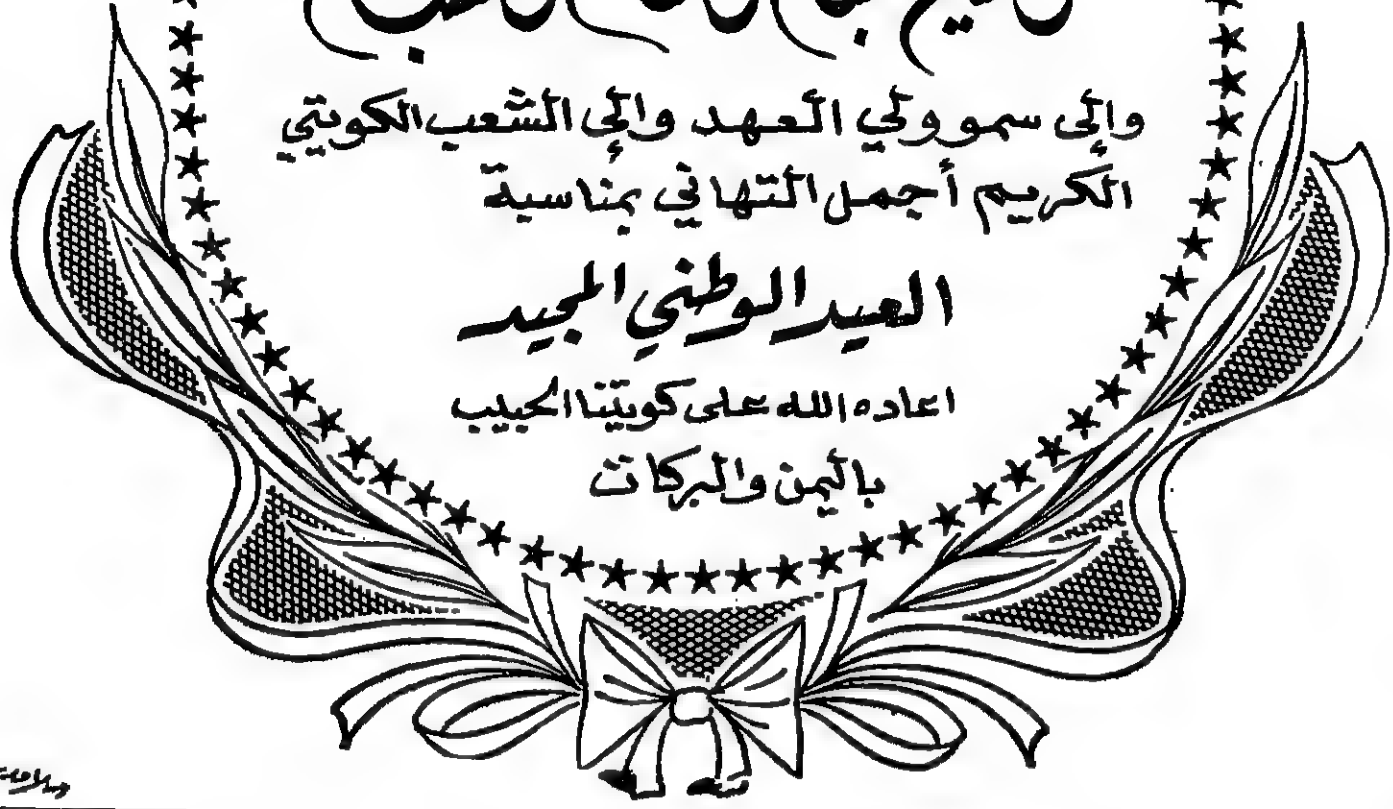 وإلى سمو ولي العهد وإلى الشعب الكويتي
الكريم أجمل التهاني بمناسبة
العيد الوطني المجيد
اعاده الله على كويتنا الحبيب
باليمن والبركات